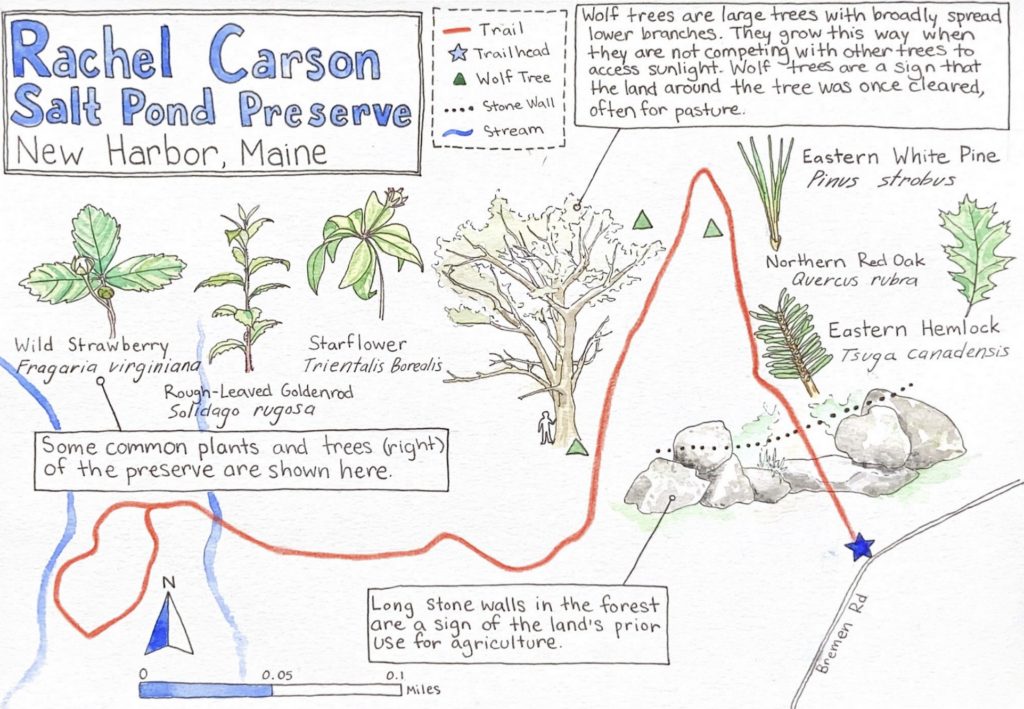 Rachel Carson
Salt Pond Preserve
New Harbor, Maine
Trail
Trailhead
Wolf Tree
Stone Wall
Stream
Wolf trees are large trees with broadly spread
lower branches. They grow this way when
they are not competing with other trees to
access sunlight. Wolf trees are a sign that
the land around the tree was once cleared,
often for pasture.
Eastern White Pine
Pinus strobus
Northern Red Oak
Quercus rubra
Eastern Hemlock
Tsuga canadensis
Wild Strawberry
Fragaria virginiana
Rough-Leaved Goldenrod
Solidago rugosa
Starflower
Trientalis Borealis
Some common plants and trees (right)
of the preserve are shown here.
Long stone walls in the forest
are a sign of the land's prior
use for agriculture.
Bremen Rd
N
0 0.05 0.1
Miles